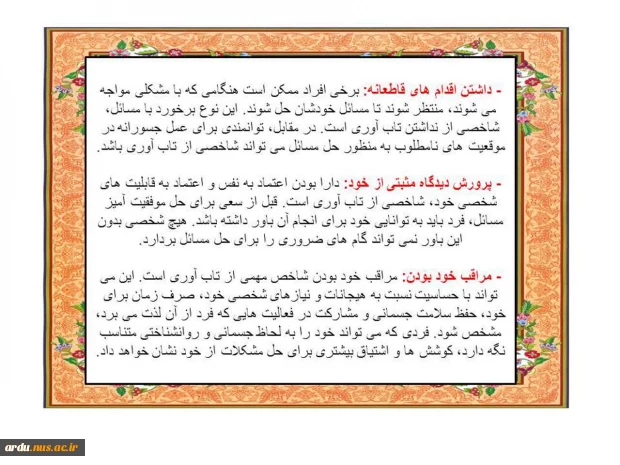 - داشتن اقدام های قاطعانه: برخی افراد ممکن است هنگامی که با مشکلی مواجه
می شوند، منتظر شوند تا مسائل خودشان حل شوند. این نوع برخورد با مسائل،
شاخصی از نداشتن تاب آوری است. در مقابل، توانمندی برای عمل جسورانه در
موقعیت های نامطلوب به منظور حل مسائل می تواند شاخصی از تاب آوری باشد.
- پرورش دیدگاه مثبتی از خود: دارا بودن اعتماد به نفس و اعتماد به قابلیت های
شخصی خود، شاخصی از تاب آوری است. قبل از سعی برای حل موفقیت آمیز
مسائل، فرد باید به توانایی خود برای انجام آن باور داشته باشد. هیچ شخصی بدون
این باور نمی تواند گام های ضروری را برای حل مسائل بردارد.
- مراقب خود بودن: مراقب خود بودن شاخص مهمی از تاب آوری است. این می
تواند با حساسیت نسبت به هیجانات و نیازهای شخصی خود، صرف زمان برای
خود، حفظ سلامت جسمانی و مشارکت در فعالیت هایی که فرد از آن لذت می برد،
مشخص شود. فردی که می تواند خود را به لحاظ جسمانی و روانشناختی متناسب
نگه دارد، کوشش ها و اشتیاق بیشتری برای حل مشکلات از خود نشان خواهد داد.
ardu.nus.ac.ir